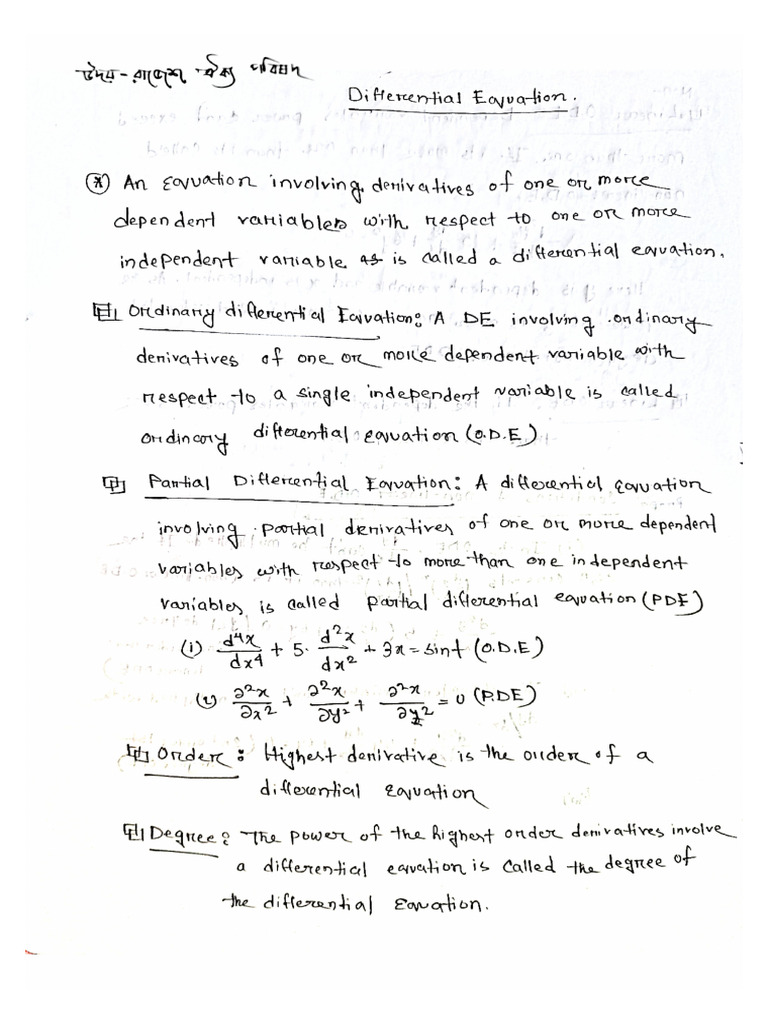 উদয় - রাজেশ ঐক্য পরিষদ
Differential Equation.
(*) An equation involving derivatives of one or more
dependent variables with respect to one or more
independent variable as is called a differential equation.
Ordinary differential Equation: A DE involving ordinary
derivatives of one or more dependent variable with
respect to a single independent variable is called
ordinary differential equation (O.D.E)
Partial Differential Equation: A differential equation
involving partial derivatives of one or more dependent
variables with respect to more than one independent
variables is called partial differential equation (PDE)
(i) d⁴x/dx⁴ + 5. d²x/dx² + 3x = sint (O.D.E)
∂²x/∂x² + ∂²x/∂y² + ∂²x/∂z² = 0 (P.DE)
Order: Highest derivative is the order of a
differential equation
Degree: The power of the highest order derivatives involve
a differential equation is called the degree of
the differential Equation.